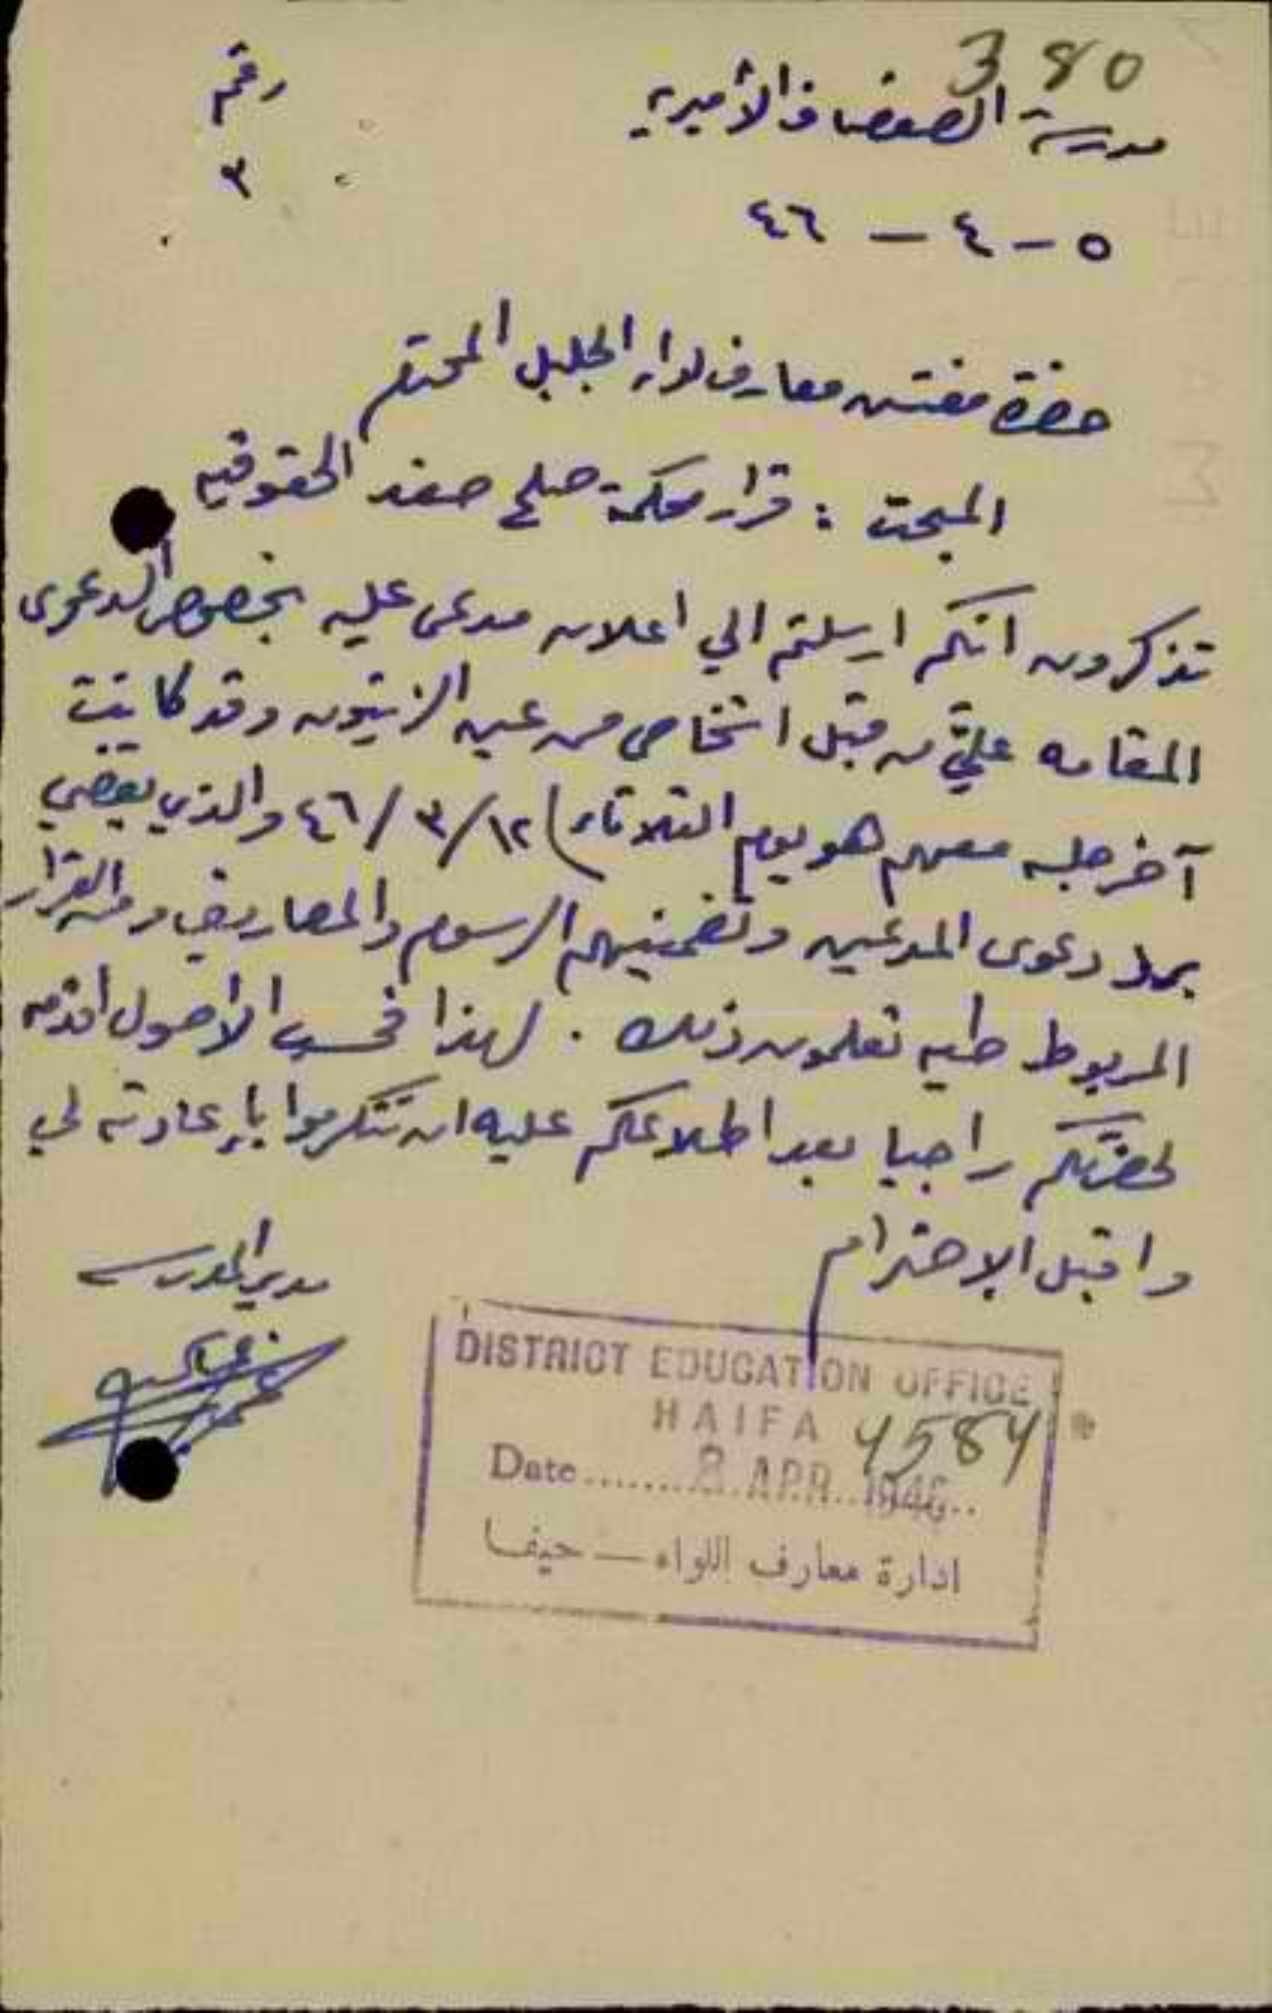 380
مدرسة الصفصاف الأميرية
رقم
٣
٥ - ٤ - ٤٦
حضرة مفتش معارف لواء الجليل المحترم
المبحث : قرار محكمة صلح صفد الحقوقيه
تذكرون انكم ارسلتم الي اعلان مدعى عليه بخصوص الدعوى
المقامه عليّ من قبل اشخاص من عين الزيتون وقد كانت
آخر جلسه معهم هو يوم الثلاثاء ١٢/٣/٤٦ والذي يقضي
برد دعوى المدعين وتضمينهم الرسوم والمصاريف ومن القرار
المربوط طيه تعلمون ذلك . لهذا فحسب الاصول اقدمه
لحضرتكم راجيا بعد اطلاعكم عليه ان تتكرموا بإعادته لي
واقبل الإحترام
مدير المدرسة
DISTRICT EDUCATION OFFICE
HAIFA 4584
Date 8 APR 1946
ادارة معارف اللواء — حيفا